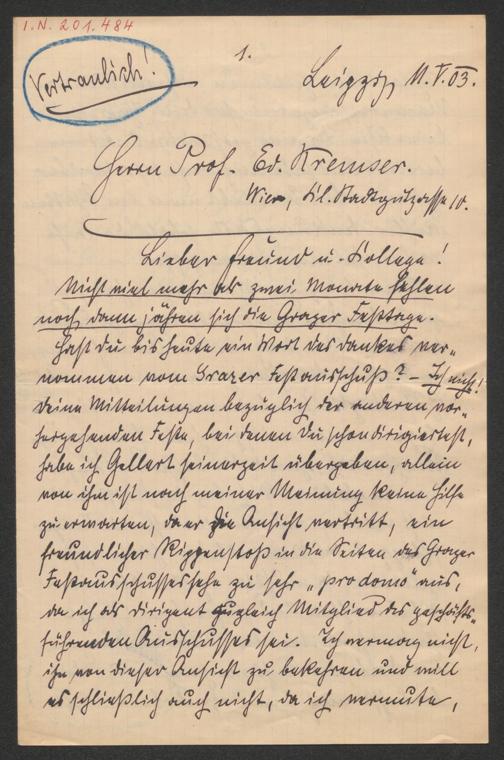 I.N. 201.484
Vertraulich!
1.
Leipzig, 11.V.03.
Herrn Prof. Ed. Kremser.
Wien, Kl. Stadtgutgasse 10.
Lieber Freund u. Kollege!
Nicht viel mehr als zwei Monate fehlen
noch, dann jähren sich die Grazer Festtage.
Hast du bis heute ein Wort des Dankes ver-
nommen vom Grazer Festausschuß? – Ich nicht!
Deine Mitteilungen bezüglich der anderen vor-
hergehenden Feste, bei denen Du schon dirigiertest,
habe ich Gellert seinerzeit übergeben, allein
von ihm ist nach meiner Meinung keine Hilfe
zu erwarten, da er die Ansicht vertritt, ein
freundlicher Rippenstoß in die Seiten des Grazer
Festausschusses sehe zu sehr „pro domo" aus,
da ich als Dirigent zugleich Mitglied des geschäfts-
führenden Ausschusses sei. Ich vermag nicht,
ihn von dieser Ansicht zu bekehren und will
es schließlich auch nicht, da ich vermute,